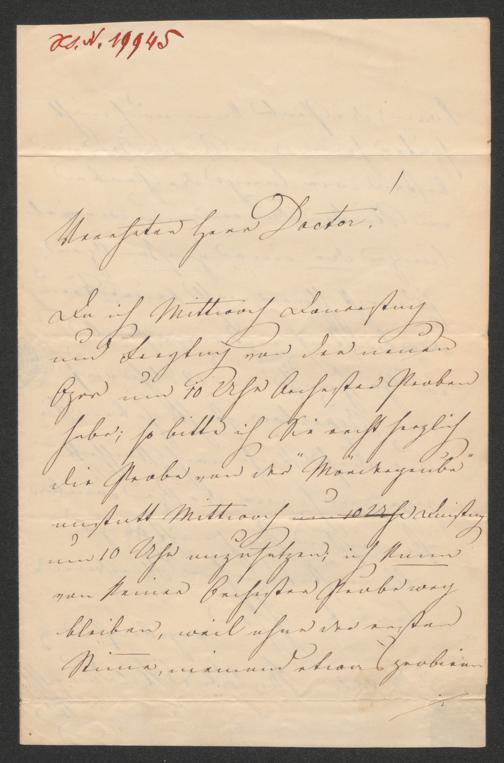 H.I.N. 19945
/
Verehrter Herr Doctor!
Da ich Mittwoch Donnerstag
und Freytag von der neuen
Oper um 10 Uhr Orchester Proben
habe; so bitte ich Sie recht herzlich
die Probe von der "Mördergrube"
anstatt Mittwoch um 10 Uhr Dinstag
um 10 Uhr anzusetzen; ich kann
von keiner Orchester Probe weg
bleiben, weil ohne der ersten
Stimme, niemand etwas probieren